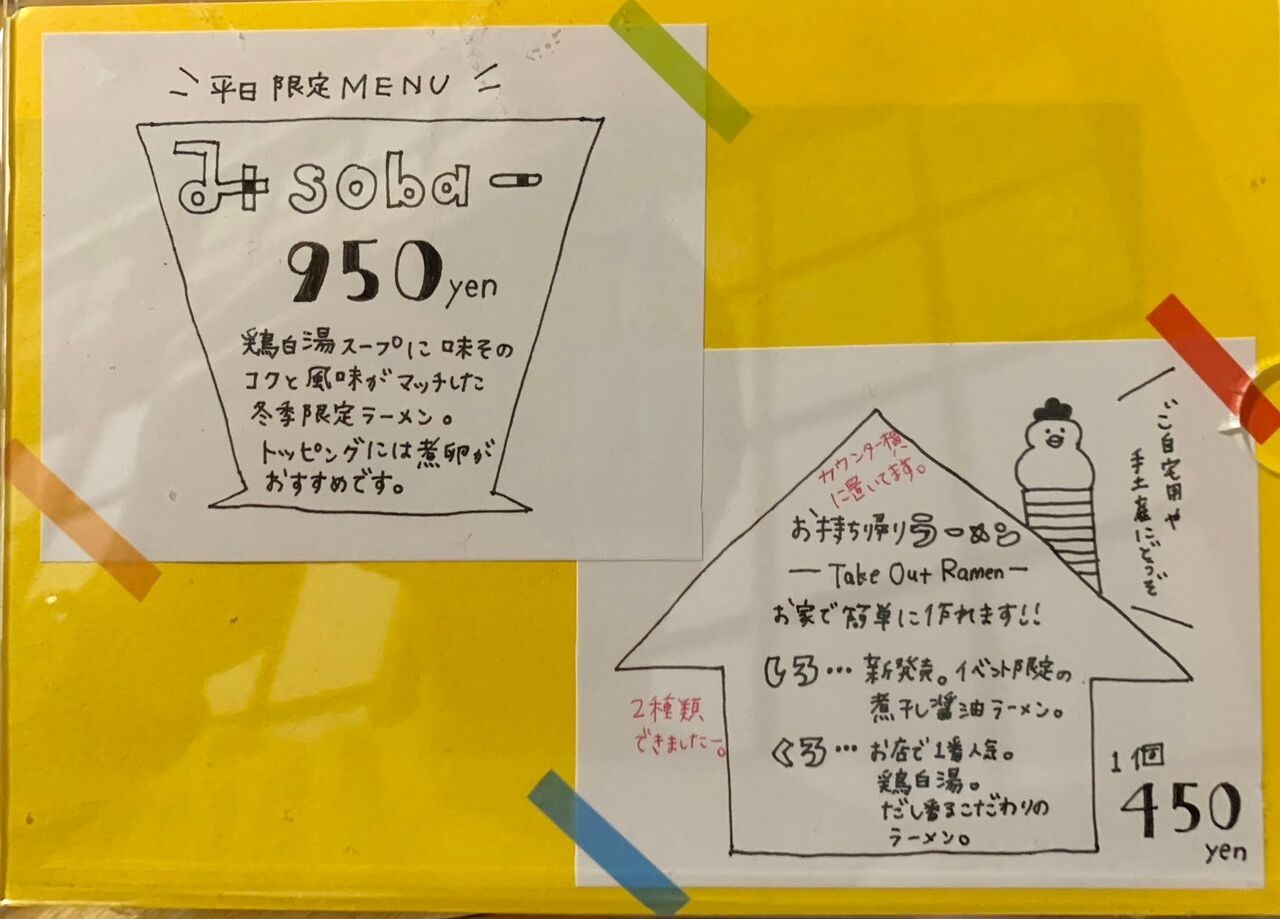 平日限定MENU
み+sobaー
950yen
鶏白湯スープに味その
コクと風味がマッチした
冬季限定ラーメン。
トッピングには煮卵が
おすすめです。
ご自宅用や
手土産にどうぞ
カウンター横
に置いてます。
お持ち帰りらーめん
―Take Out Ramen―
お家で簡単に作れます!!
しろ…新発売。イベント限定の
煮干し醤油ラーメン。
くろ…お店で1番人気。
鶏白湯。
だし香るこだわりの
ラーメン。
2種類
できましたー。
1個
450
yen